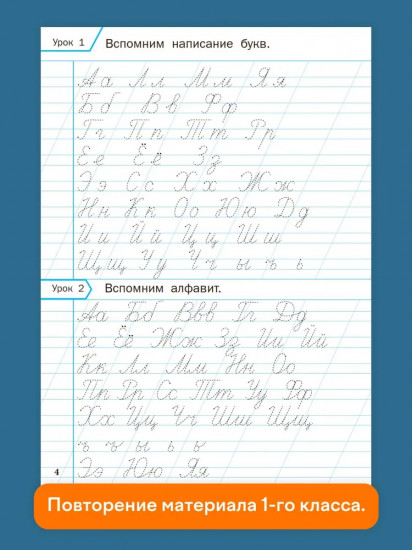 Урок 1
Вспомним написание букв.
Аа Лл Мм Яя
Бб Вв Фф
Гг Пп Тт Рр
Ее Ёё Зз
Ээ Сс Хх Жж
Нн Кк Оо Юю Дд
Ии Йй Цц Шш
Щщ Уу Чч ы ъ ь
Урок 2
Вспомним алфавит.
Аа Бб Вв Гг Дд
Ее Ёё Жж Зз Ии Йй
Кк Лл Мм Нн Оо
Пп Рр Сс Тт Уу Фф
Хх Цц Чч Шш Щщ
ъ ы ь
Ээ Юю Яя
4
Повторение материала 1-го класса.